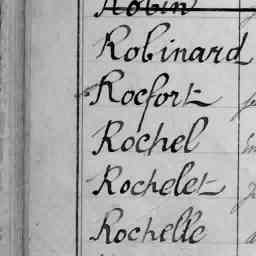 Robin
Robinard
Rocfort
Rochel
Rochelet
Rochelle